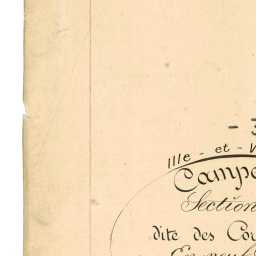 - 3
Ille - et - V
Campe
Section
dite des Cou
En neuf